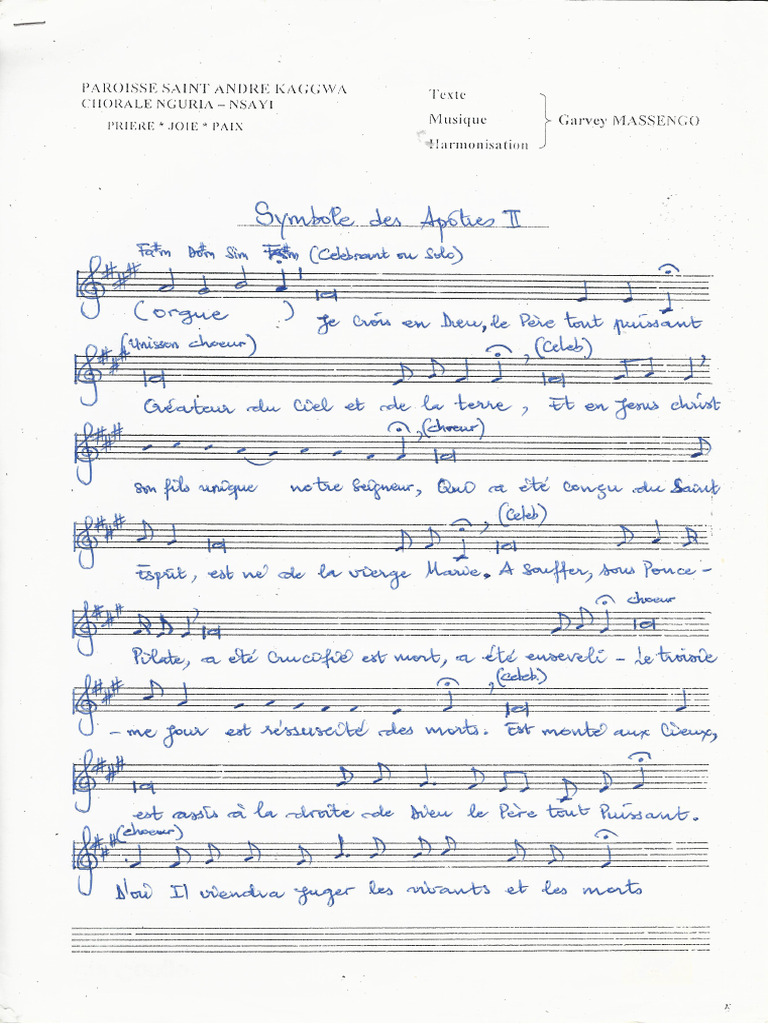 PAROISSE SAINT ANDRE KAGGWA
CHORALE NGURIA – NSAYI
PRIERE * JOIE * PAIX
Texte
Musique
Harmonisation
Garvey MASSENGO
Symbole des Apôtres II
Fa#m Do#m Sim Fa#m (Célébrant ou Solo)
(orgue ) Je crois en Dieu, le Père tout puissant
(Unisson choeur) (Celeb)
Créateur du Ciel et de la terre, Et en Jesus christ
(choeur)
son fils unique notre Seigneur, Qui a été conçu du Saint
(Celeb)
Esprit, est né de la vierge Marie. A Souffer, sous Ponce -
choeur
Pilate, a été Crucifié est mort, a été enseveli - Le troisie
(celeb.)
- me jour est réssuscité des morts. Est monté aux Cieux,
est assis à la droite de Dieu le Père tout Puissant.
(choeur)
D'où Il viendra juger les vivants et les morts